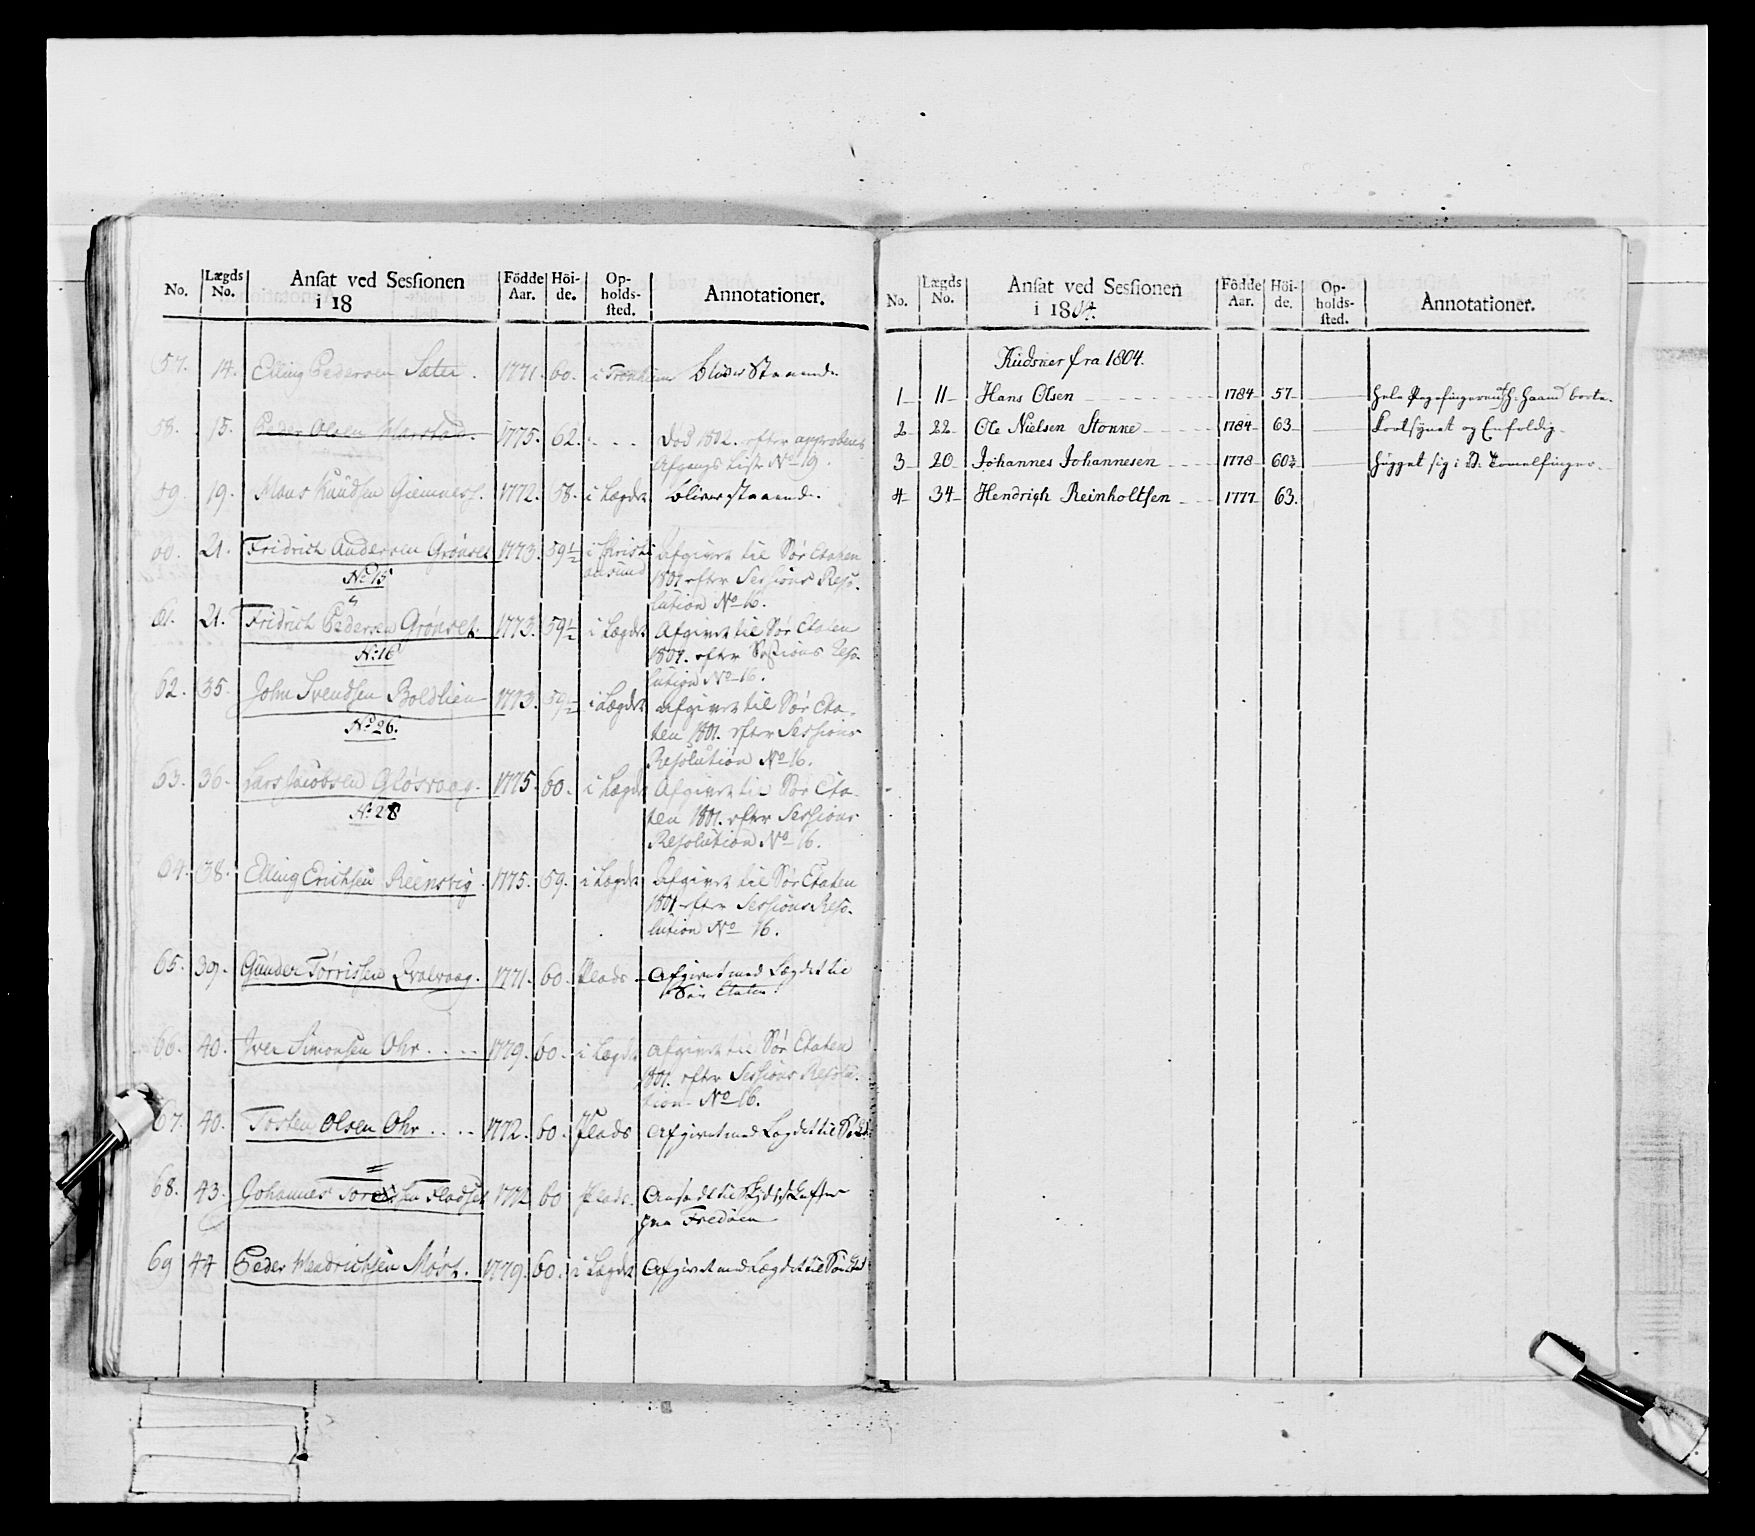 No. Lægds No. Ansat ved Sessionen i 18 Födde Aar. Höi-de. Op-holds-sted. Annotationer.
57. 14. Elling Pedersen Sæter. 1771. 60. i Tronhiem bliver staaende.
58. 15. Peder Olsen Harstad. 1775. 62. Död 1802. efter approberet
Afgangs Liste No 19.
59. 19. Mons Knudsen Giemnes. 1772. 58. i Lægdet bliver staaende.
60. 21. Fridrich Andersen Grönset 1773. 59½ i Christi Afgivet til Sör Etaten
No 15 ansund 1801 efter Sessions Reso-
lution No 16.
61. 21. Fridrich Pedersen Grönset. 1773. 59½ i Lægdet Afgivet til Sör Etaten
No 16 1801. efter Sessions Reso-
lution No 16.
62. 35. John Svendsen Boldlien 1773. 59½ i Lægdet afgivet til Sör Eta-
No 26. ten 1801. efter Sessions
Resolution No 16.
63. 36. Lars Jacobsen Glösvaag. 1775. 60. i Lægdet Afgivet til Sör Eta-
No 28 ten 1801. efter Sessions
Resolution No 16.
64. 38. Elling Erichsen Reensvig. 1775. 59. i Lægdet Afgivet til Sör Etaten
1801 efter Sessions Reso-
lution No 16.
65. 39. Gunder Törrissen Qvalvaag. 1771. 60. Plads Afgivet med Lægdet til
Sör Etaten.
66. 40. Iver Simonsen Ohr. 1779. 60. i Lægdet afgivet til Sör Etaten
1801. efter Sessions Resolu-
tion No 16.
67. 40. Tosten Olsen Ohr. 1772. 60. Plads Afgivet med Lægdet til
68. 43. Johannes Fladset 1772 60 Plads Ansadt til
paa Fredöen
69 44 Peder Hendrichsen Möst. 1779. 60. i Lægdet Afgivet med Lægdet til Sör Etat
No. Lægds No. Ansat ved Sessionen i 1804. Födde Aar. Höi-de. Op-holds-sted. Annotationer.
Kudsner fra 1804.
1 11 Hans Olsen 1784 57 Haand borte.
2 22 Ole Nielsen Stonne 1784 63 Kortsynet og Enfoldig.
3 20 Johannes Johannesen 1778 60¾ hugget sig i Tomelfinger.
4 34 Hendrigh Reinholtsen 1777 63.